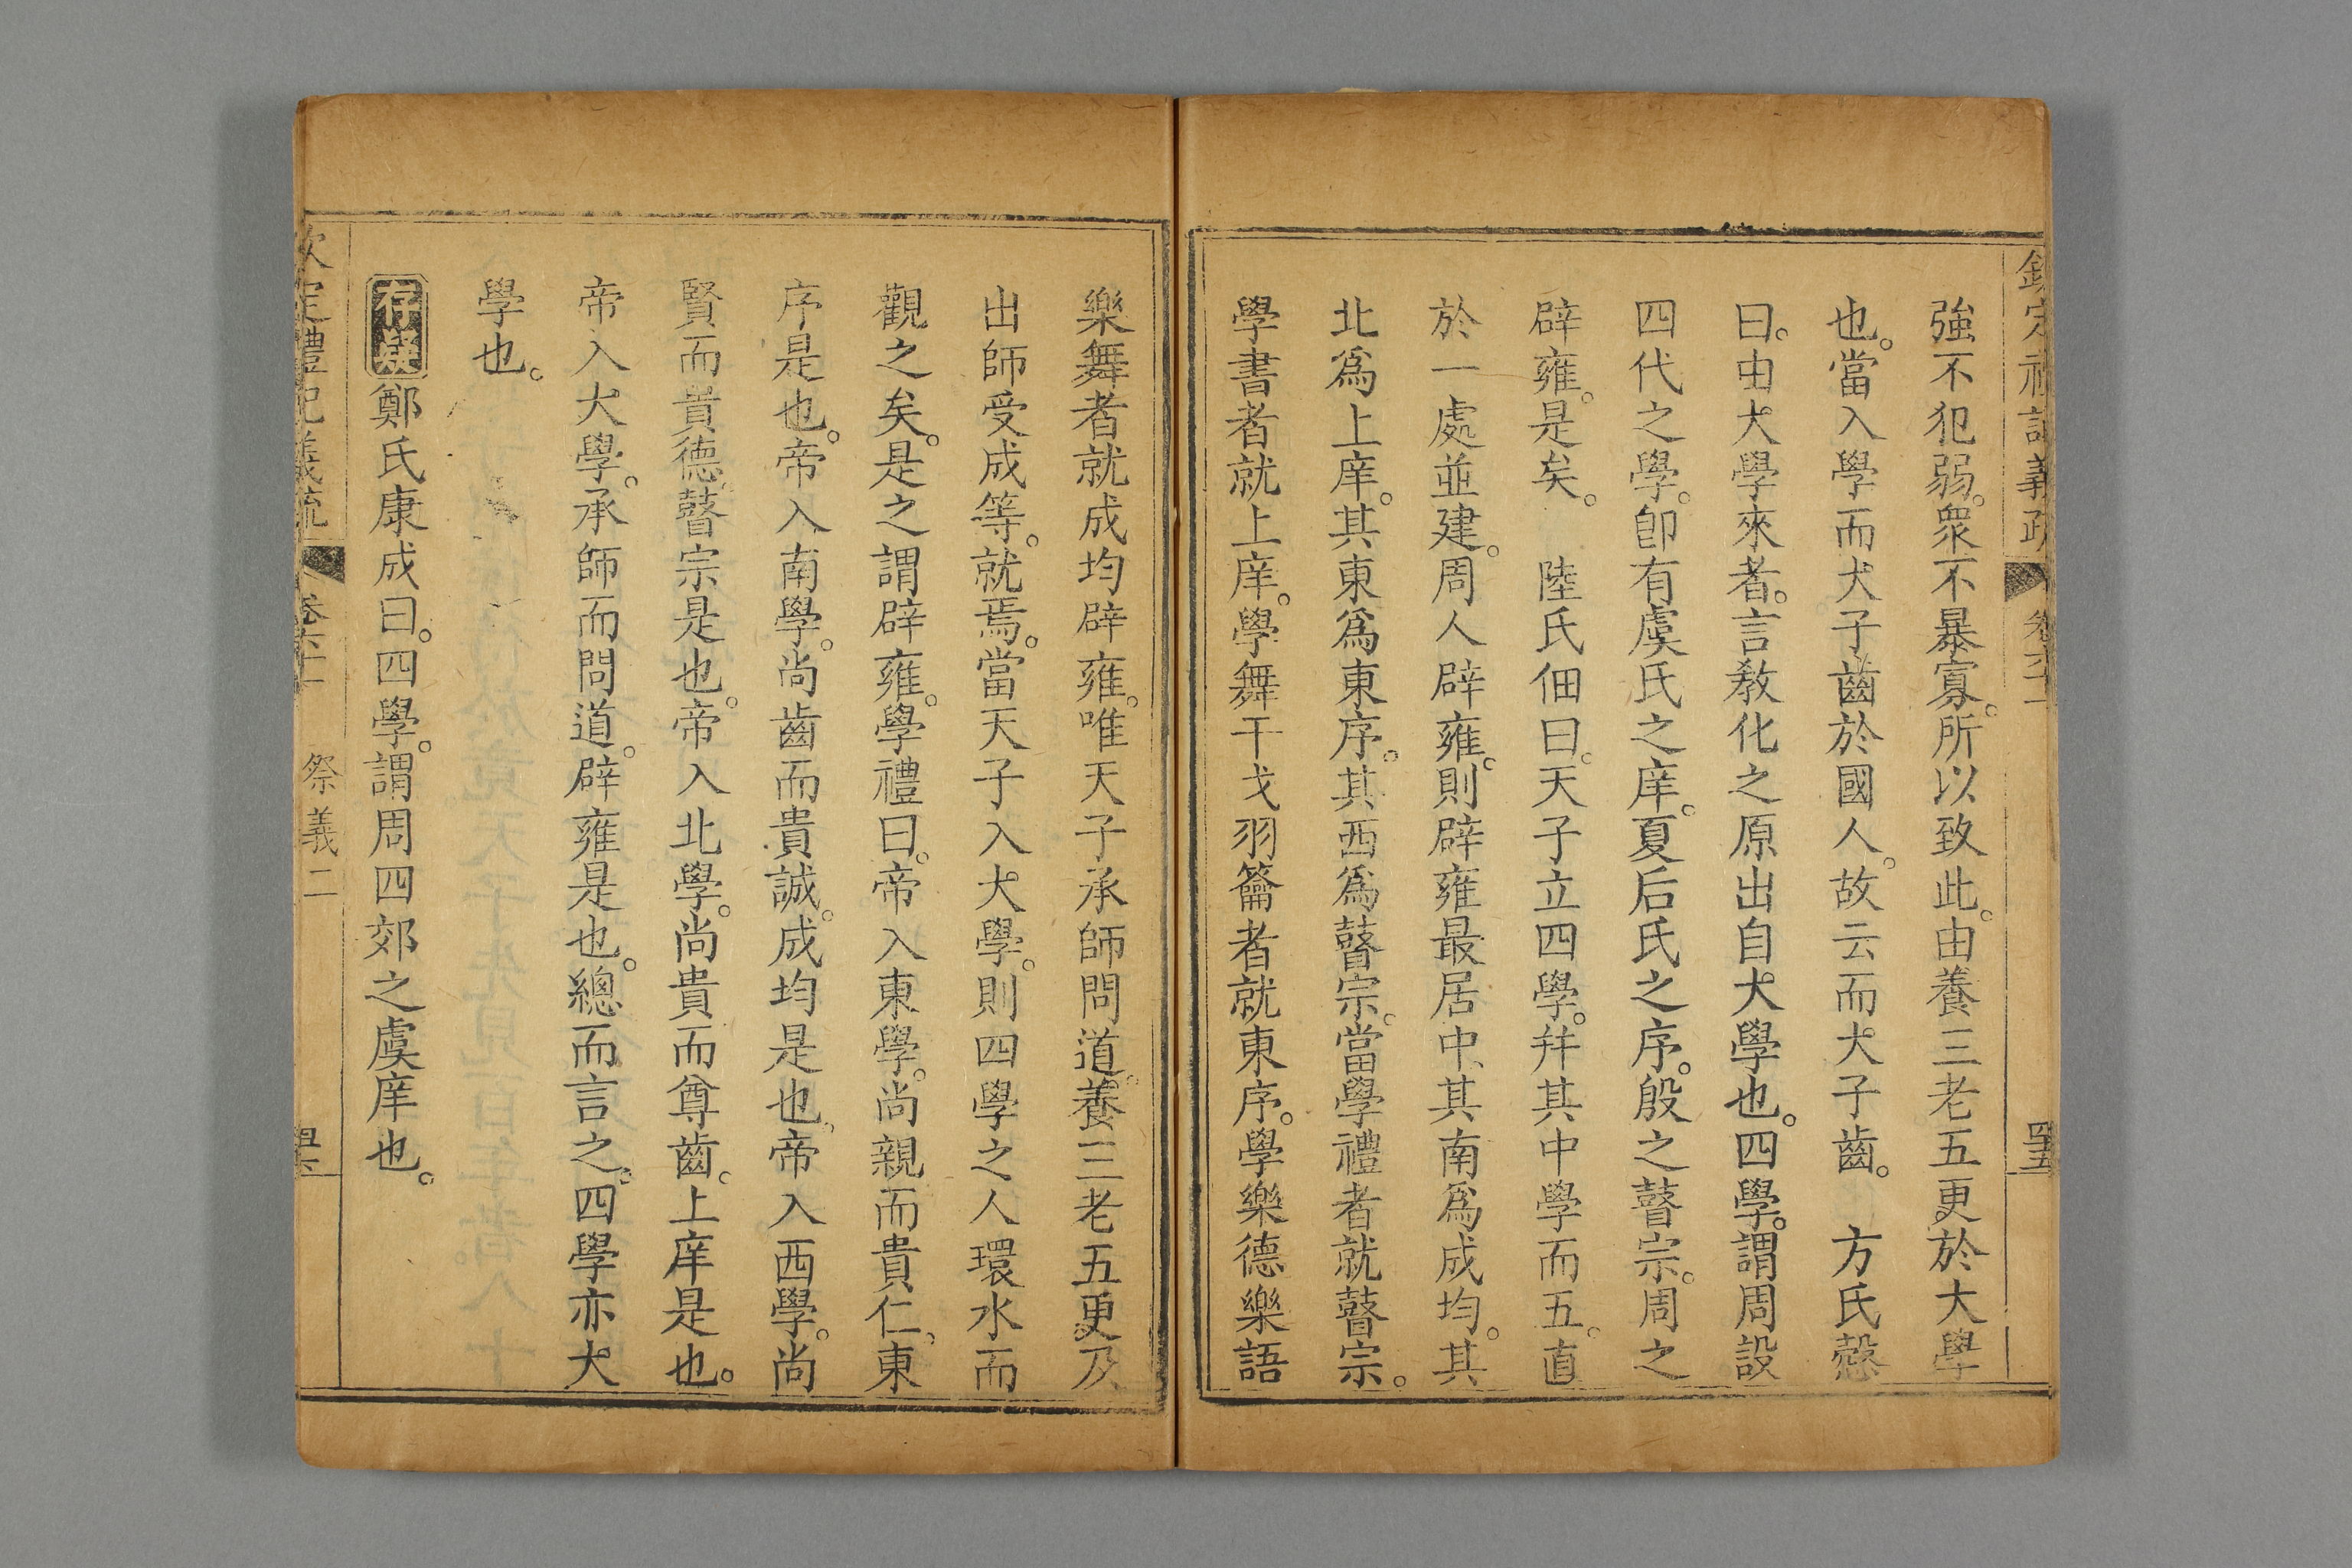 強不犯弱。衆不暴寡。所以致此。由養三老五更於大學
也。當入學而大子齒於國人。故云而大子齒。　方氏慤
曰。由大學來者。言敎化之原出自大學也。四學。謂周設
四代之學。卽有虞氏之庠。夏后氏之序。殷之瞽宗。周之
辟雍。是矣。　陸氏佃曰。天子立四學。幷其中學而五。直
於一處並建。周人辟雍。則辟雍最居中。其南爲成均。其
北爲上庠。其東爲東序。其西爲瞽宗。當學禮者就瞽宗。
學書者就上庠。學舞干戈羽籥者就東序。學樂德樂語
樂舞者就成均辟雍。唯天子承師問道。養三老五更。及
出師受成等。就焉。當天子入大學。則四學之人環水而
觀之矣。是之謂辟雍。學禮曰。帝入東學。尚親而貴仁。東
序是也。帝入南學。尚齒而貴誠。成均是也。帝入西學。尚
賢而貴德。瞽宗是也。帝入北學。尚貴而尊齒。上庠是也。
帝入大學。承師而問道。辟雍是也。總而言之。四學亦大
學也。
存疑鄭氏康成曰。四學。謂周四郊之虞庠也。
欽定禮記義疏　卷六十一　祭義二